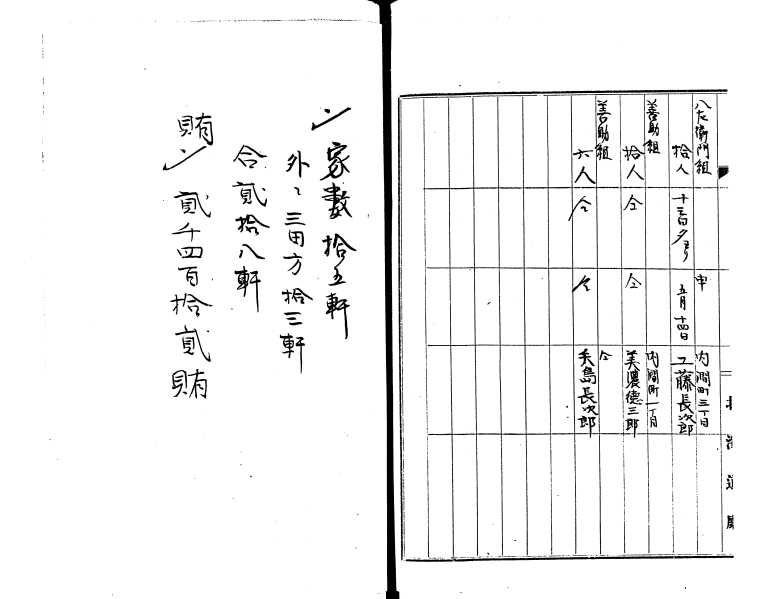 八左衛門組
拾人
十三日夕ヨリ
申
五月十四日
内澗町三丁目
工藤長次郎
善助組
拾人
仝
仝
内澗町一丁目
美濃徳三郎
善助組
六人
仝
仝
仝
長次郎
北海道廳
〆家數拾五軒
外ニ三田方拾三軒
合貳拾八軒
賄〆貳千四百拾貳賄